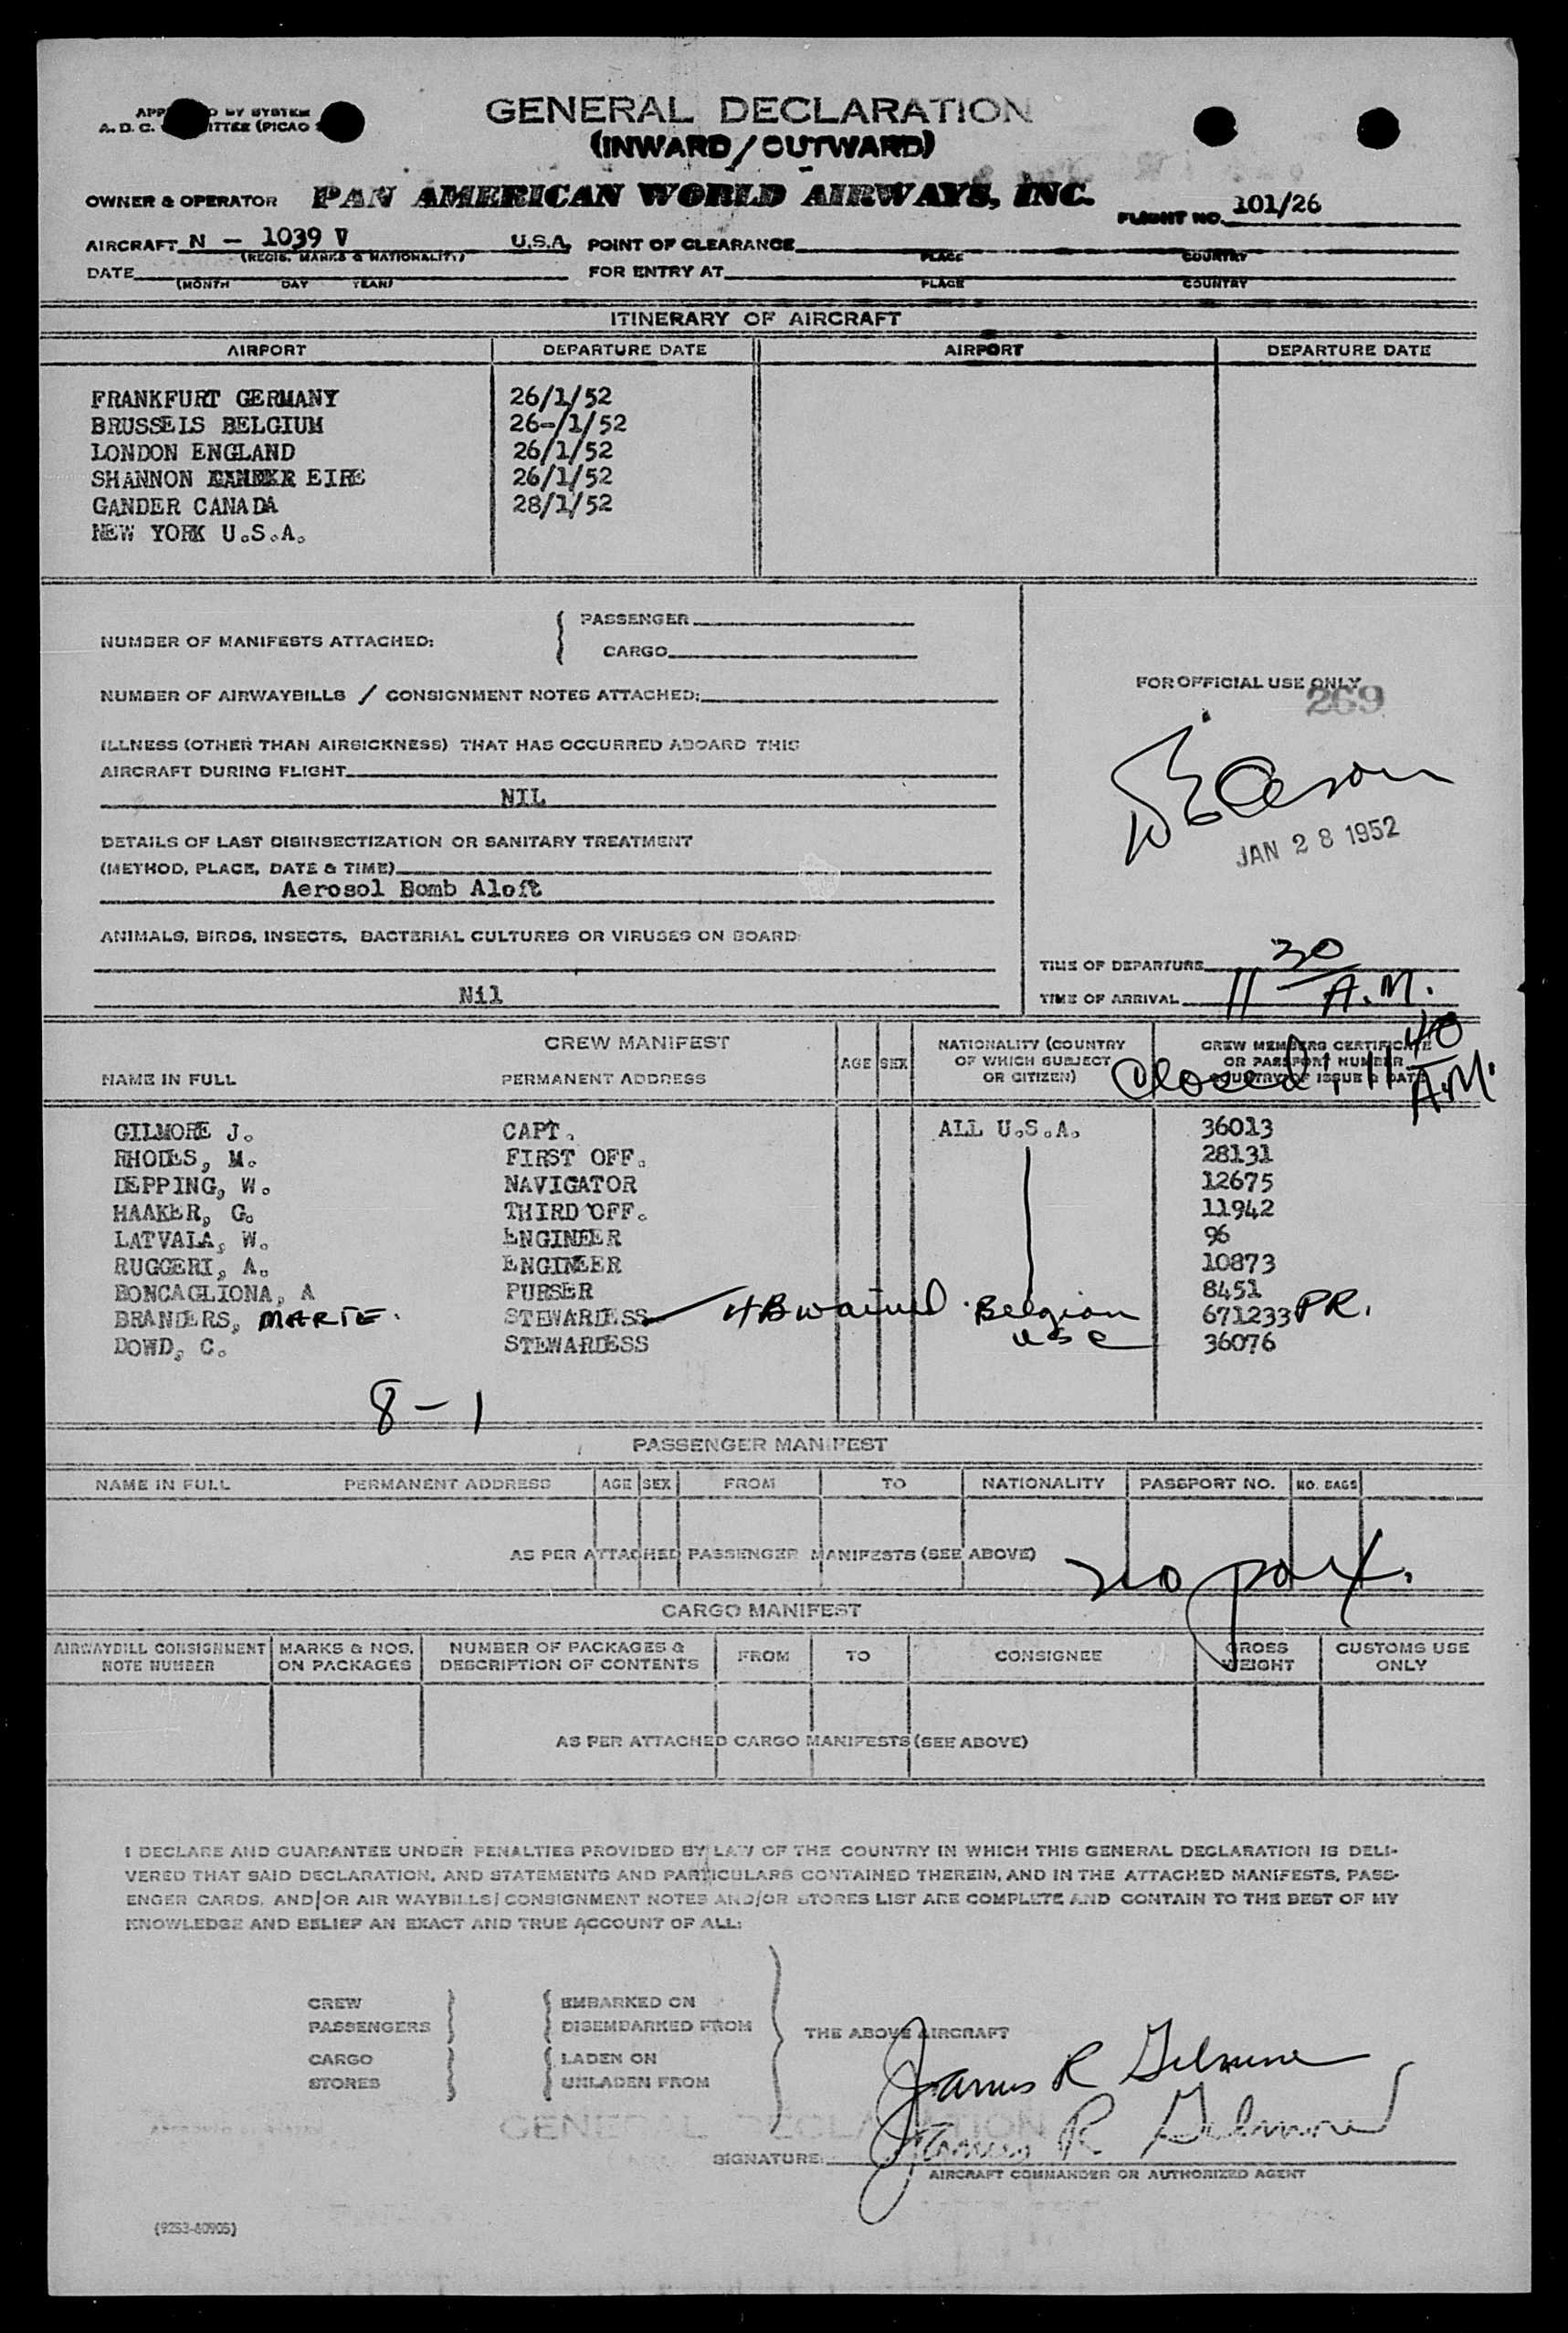 GENERAL DECLARATION
(INWARD/OUTWARD)
A. D. C. (PICAO
OWNER & OPERATOR PAN AMERICAN WORLD AIRWAYS, INC. FLIGHT NO. 101/26
AIRCRAFT N - 1039 V U.S.A. POINT OF CLEARANCE
(REGIS. MARKS & NATIONALITY) PLACE COUNTRY
DATE FOR ENTRY AT
(MONTH DAY YEAR) PLACE COUNTRY
ITINERARY OF AIRCRAFT
AIRPORT DEPARTURE DATE AIRPORT DEPARTURE DATE
FRANKFURT GERMANY 26/1/52
BRUSSELS BELGIUM 26-/1/52
LONDON ENGLAND 26/1/52
SHANNON EIRE 26/1/52
GANDER CANADA 28/1/52
NEW YORK U.S.A.
NUMBER OF MANIFESTS ATTACHED: PASSENGER
CARGO
NUMBER OF AIRWAYBILLS / CONSIGNMENT NOTES ATTACHED:
FOR OFFICIAL USE ONLY
269
ILLNESS (OTHER THAN AIRSICKNESS) THAT HAS OCCURRED ABOARD THIS
AIRCRAFT DURING FLIGHT
NIL
DETAILS OF LAST DISINSECTIZATION OR SANITARY TREATMENT
(METHOD, PLACE, DATE & TIME)
Aerosol Bomb Aloft
JAN 28 1952
ANIMALS, BIRDS, INSECTS, BACTERIAL CULTURES OR VIRUSES ON BOARD:
Nil
TIME OF DEPARTURE
TIME OF ARRIVAL 11 30 A.M.
Closed: 11 40 A.M.
CREW MANIFEST
NAME IN FULL PERMANENT ADDRESS AGE SEX NATIONALITY (COUNTRY OF WHICH SUBJECT OR CITIZEN) CREW MEMBERS CERTIFICATE OR PASSPORT NUMBER COUNTRY OF ISSUE & DATE
GILMORE J. CAPT. ALL U.S.A. 36013
RHODES, M. FIRST OFF. 28131
DEPPING, W. NAVIGATOR 12675
HAAKER, G. THIRD OFF. 11942
LATVALA, W. ENGINEER 96
RUGGERI, A. ENGINEER 10873
BONCAGLIONA, A PURSER 8451
BRANDERS, MARIE. STEWARDESS 4B waived Belgian 671233 PR.
DOWD, C. STEWARDESS USC 36076
8 - 1
PASSENGER MANIFEST
NAME IN FULL PERMANENT ADDRESS AGE SEX FROM TO NATIONALITY PASSPORT NO. NO. BAGS
AS PER ATTACHED PASSENGER MANIFESTS (SEE ABOVE)
no pax.
CARGO MANIFEST
AIRWAYBILL CONSIGNMENT NOTE NUMBER MARKS & NOS. ON PACKAGES NUMBER OF PACKAGES & DESCRIPTION OF CONTENTS FROM TO CONSIGNEE GROSS WEIGHT CUSTOMS USE ONLY
AS PER ATTACHED CARGO MANIFESTS (SEE ABOVE)
I DECLARE AND GUARANTEE UNDER PENALTIES PROVIDED BY LAW OF THE COUNTRY IN WHICH THIS GENERAL DECLARATION IS DELI-
VERED THAT SAID DECLARATION, AND STATEMENTS AND PARTICULARS CONTAINED THEREIN, AND IN THE ATTACHED MANIFESTS, PASS-
ENGER CARDS, AND/OR AIR WAYBILLS/CONSIGNMENT NOTES AND/OR STORES LIST ARE COMPLETE AND CONTAIN TO THE BEST OF MY
KNOWLEDGE AND BELIEF AN EXACT AND TRUE ACCOUNT OF ALL:
CREW EMBARKED ON
PASSENGERS DISEMBARKED FROM THE ABOVE AIRCRAFT
CARGO LADEN ON
STORES UNLADEN FROM
James R Gilmore
GENERAL DECLARATION
SIGNATURE: James R Gilmore
AIRCRAFT COMMANDER OR AUTHORIZED AGENT
(9253-40905)